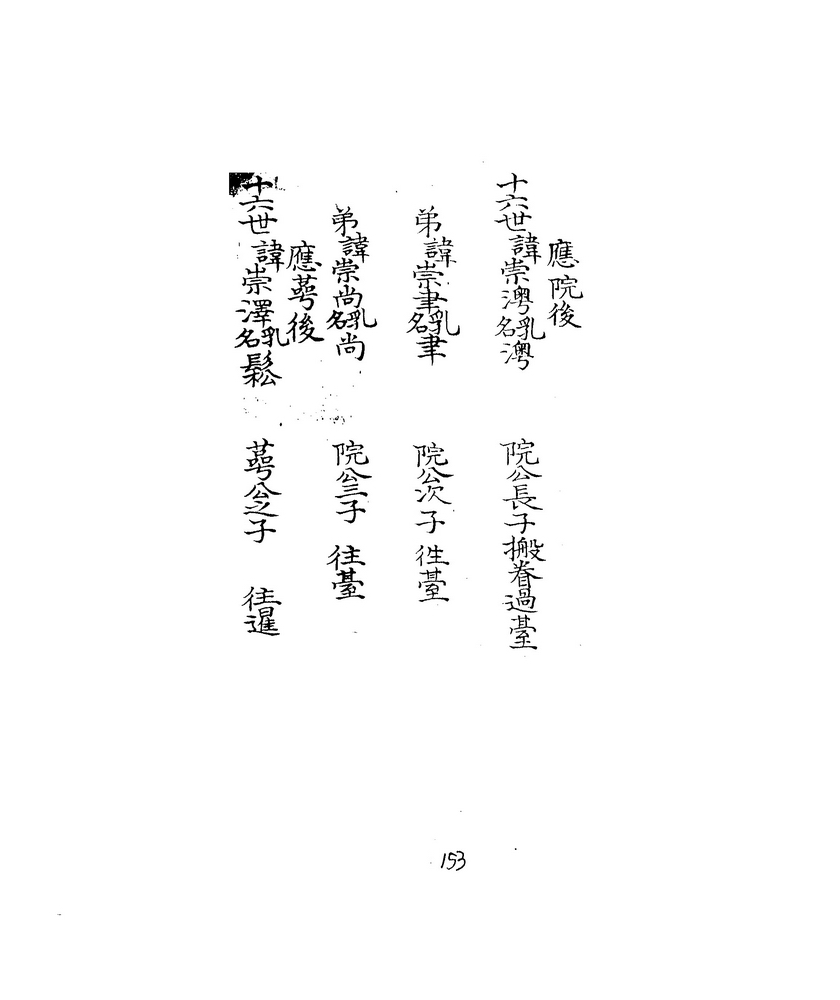 應院後
十六世諱崇澳乳名澳 院公長子搬眷過臺
弟諱崇聿乳名聿 院公次子 徃臺
弟諱崇尚乳名尚 院公三子 往臺
應萼後
十六世諱崇澤乳名鬆 萼公之子 往暹
153